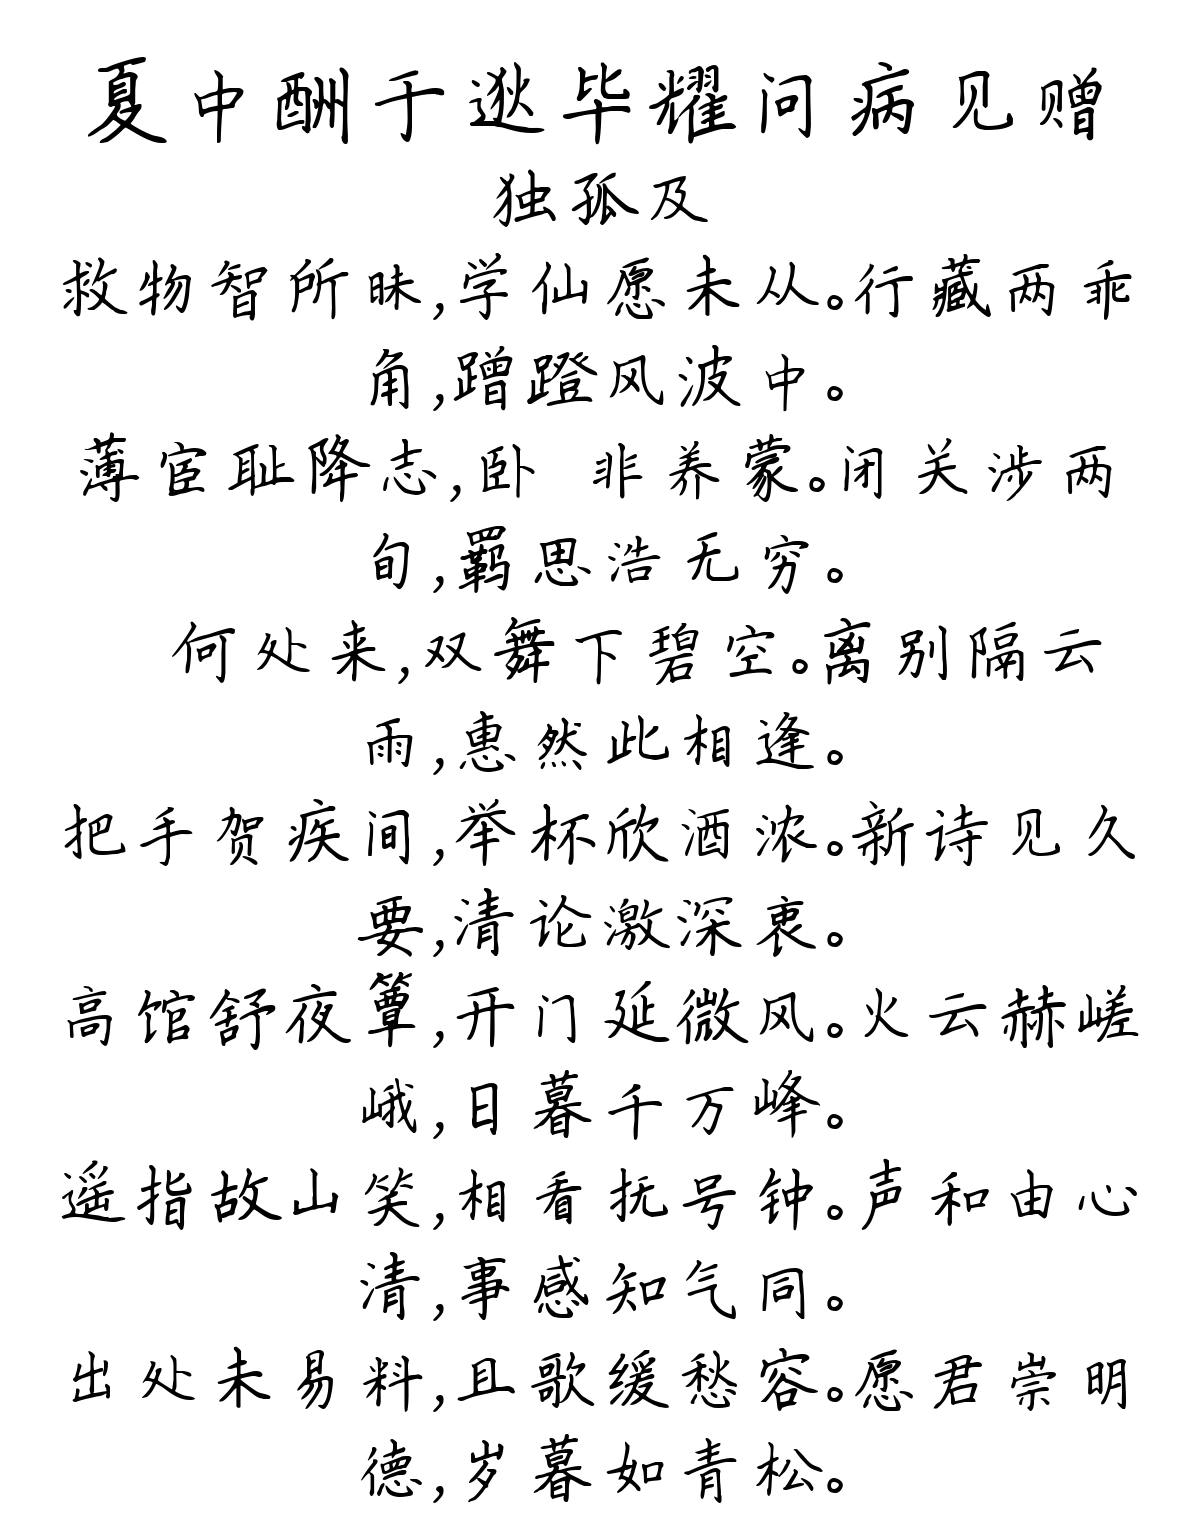 夏中酬于逖毕耀问病见赠
独孤及
救物智所昧,学仙愿未从。行藏两乖
角,蹭蹬风波中。
薄宦耻降志,卧 非养蒙。闭关涉两
旬,羁思浩无穷。
何处来,双舞下碧空。离别隔云
雨,惠然此相逢。
把手贺疾间,举杯欣酒浓。新诗见久
要,清论激深衷。
高馆舒夜簟,开门延微风。火云赫嵯
峨,日暮千万峰。
遥指故山笑,相看抚号钟。声和由心
清,事感知气同。
出处未易料,且歌缓愁容。愿君崇明
德,岁暮如青松。